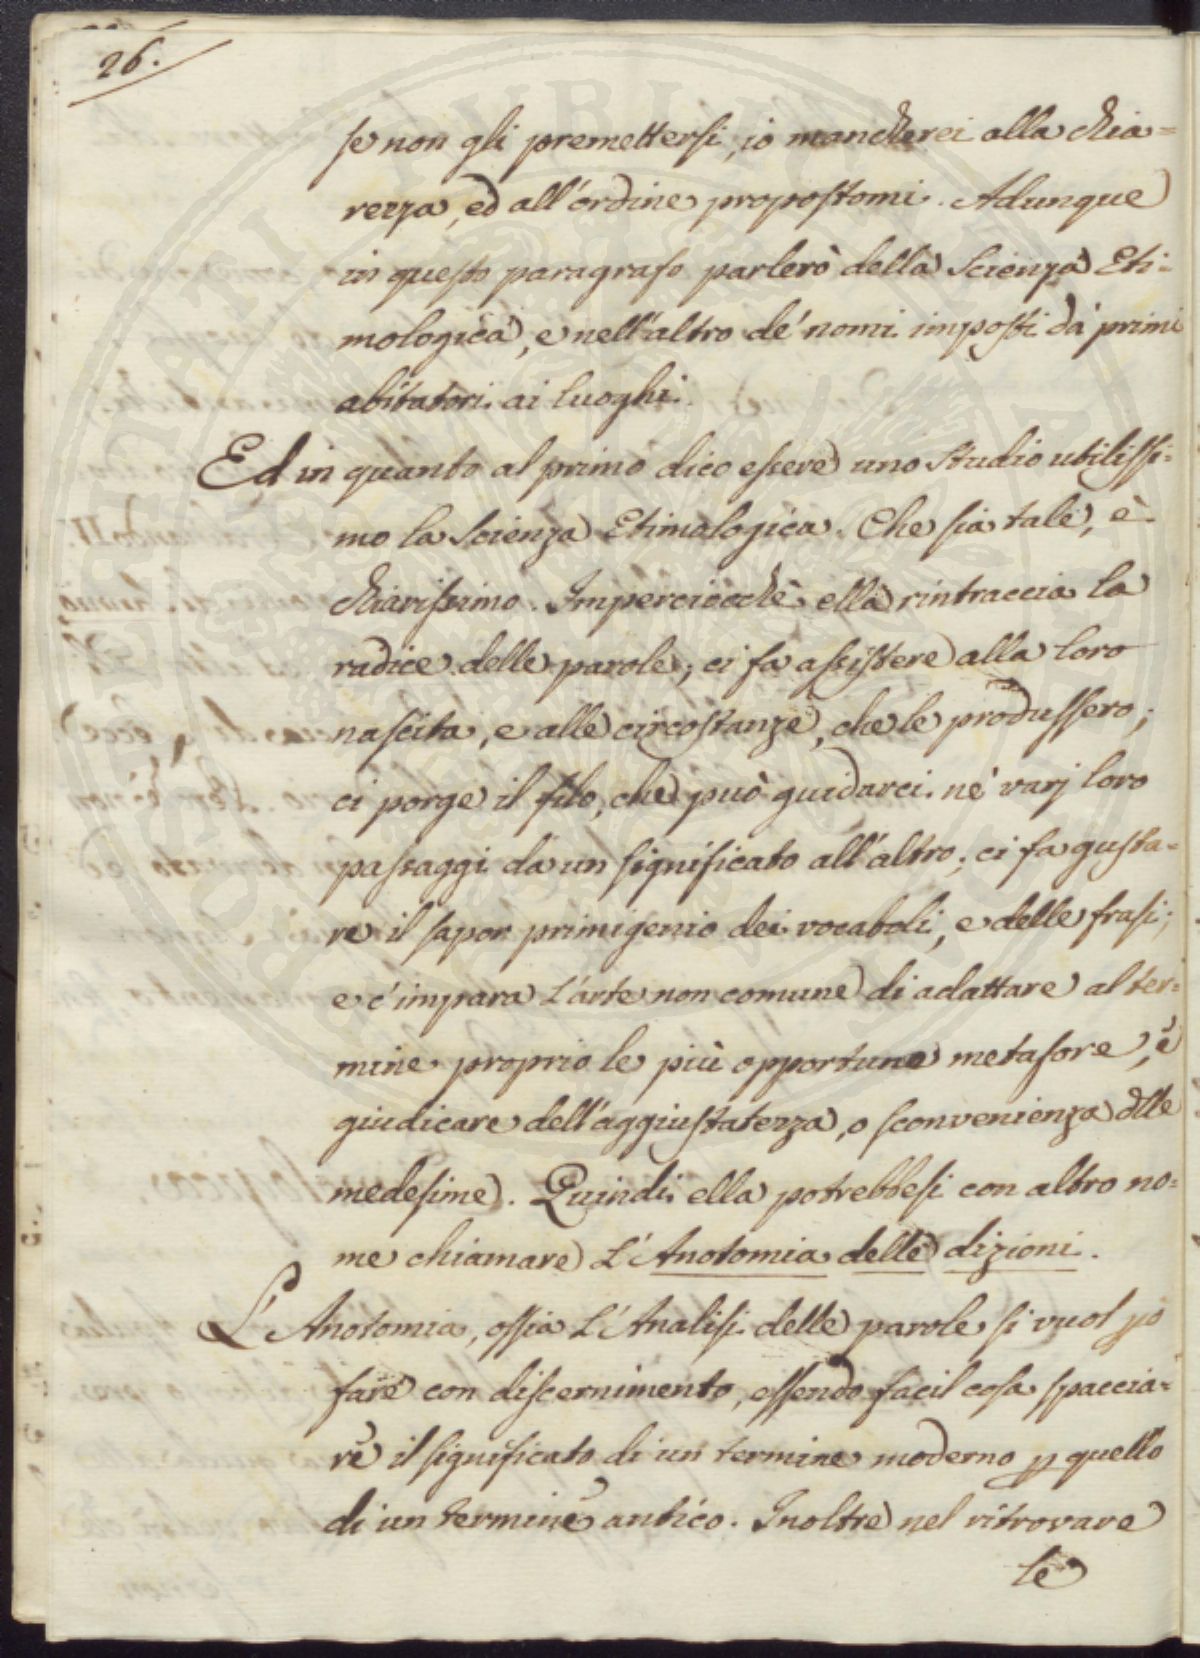 26.
se non gli premettessi, io mancherei alla chia=
rezza, ed all'ordine propostomi. Adunque
in questo paragrafo parlerò della Scienza Eti=
mologica, e nell'altro de' nomi imposti da' primi
abitatori ai luoghi.
Ed in quanto al primo dico essere uno studio utilissi=
mo la Scienza Etimalogica. Che sia tale, è
chiarissimo. Imperciocchè ella rintraccia la
radice delle parole; ci fa assistere alla loro
nascita, e alle circostanze, che le produssero;
ci porge il filo, che può guidarci ne' varj loro
passaggi da un significato all'altro; ci fa gusta=
re il sapor primigenio dei vocaboli, e delle frasi;
e c'impara l'arte non comune di adattare al ter=
mine proprio le più opportune metafore, è
giudicare dell'aggiustatezza, o sconvenienza dlle
medesime. Quindi ella potrebbesi con altro no=
me chiamare L'Anotomia delle dizioni.
L'Anotomia, ossia L'Analisi delle parole si vuol pò
fare con discernimento, essendo facil cosa spaccia=
re il significato di un termine moderno p quello
di un termine antico. Inoltre nel ritrovare
le
PROSPERITATI PUBLICAE AUGENDAE